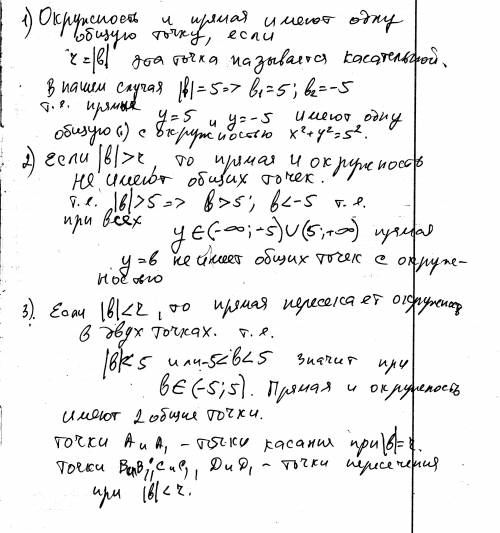 1) Окружность и прямая имеют одну
общую точку, если
r=|b| эта точка называется касательной.
В нашем случая |b|=5=> b₁=5; b₂=-5
т.е. прямые
y=5 и y=-5 имеют одну
общую с окружностью x²+y²=5².
2) Если |b|>r, то прямая и окружность
не имеют общих точек.
т.е. |b|>5=> b>5; b<-5 т.е.
при всех
y∈(-∞;-5)∪(5;+∞) прямая
y=b не имеет общих точек с окруже-
ностью
3). Если |b|<r, то прямая пересекает окружность
в двух точках. т.е.
|b|<5 или -5<b<5 значит при
b∈(-5;5). Прямая и окружность
имеют 2 общие точки.
точки A и A₁ – точки касания при |b|=r.
точки B и B₁; C и C₁, D и D₁ – точки пересечения
при |b|<r.